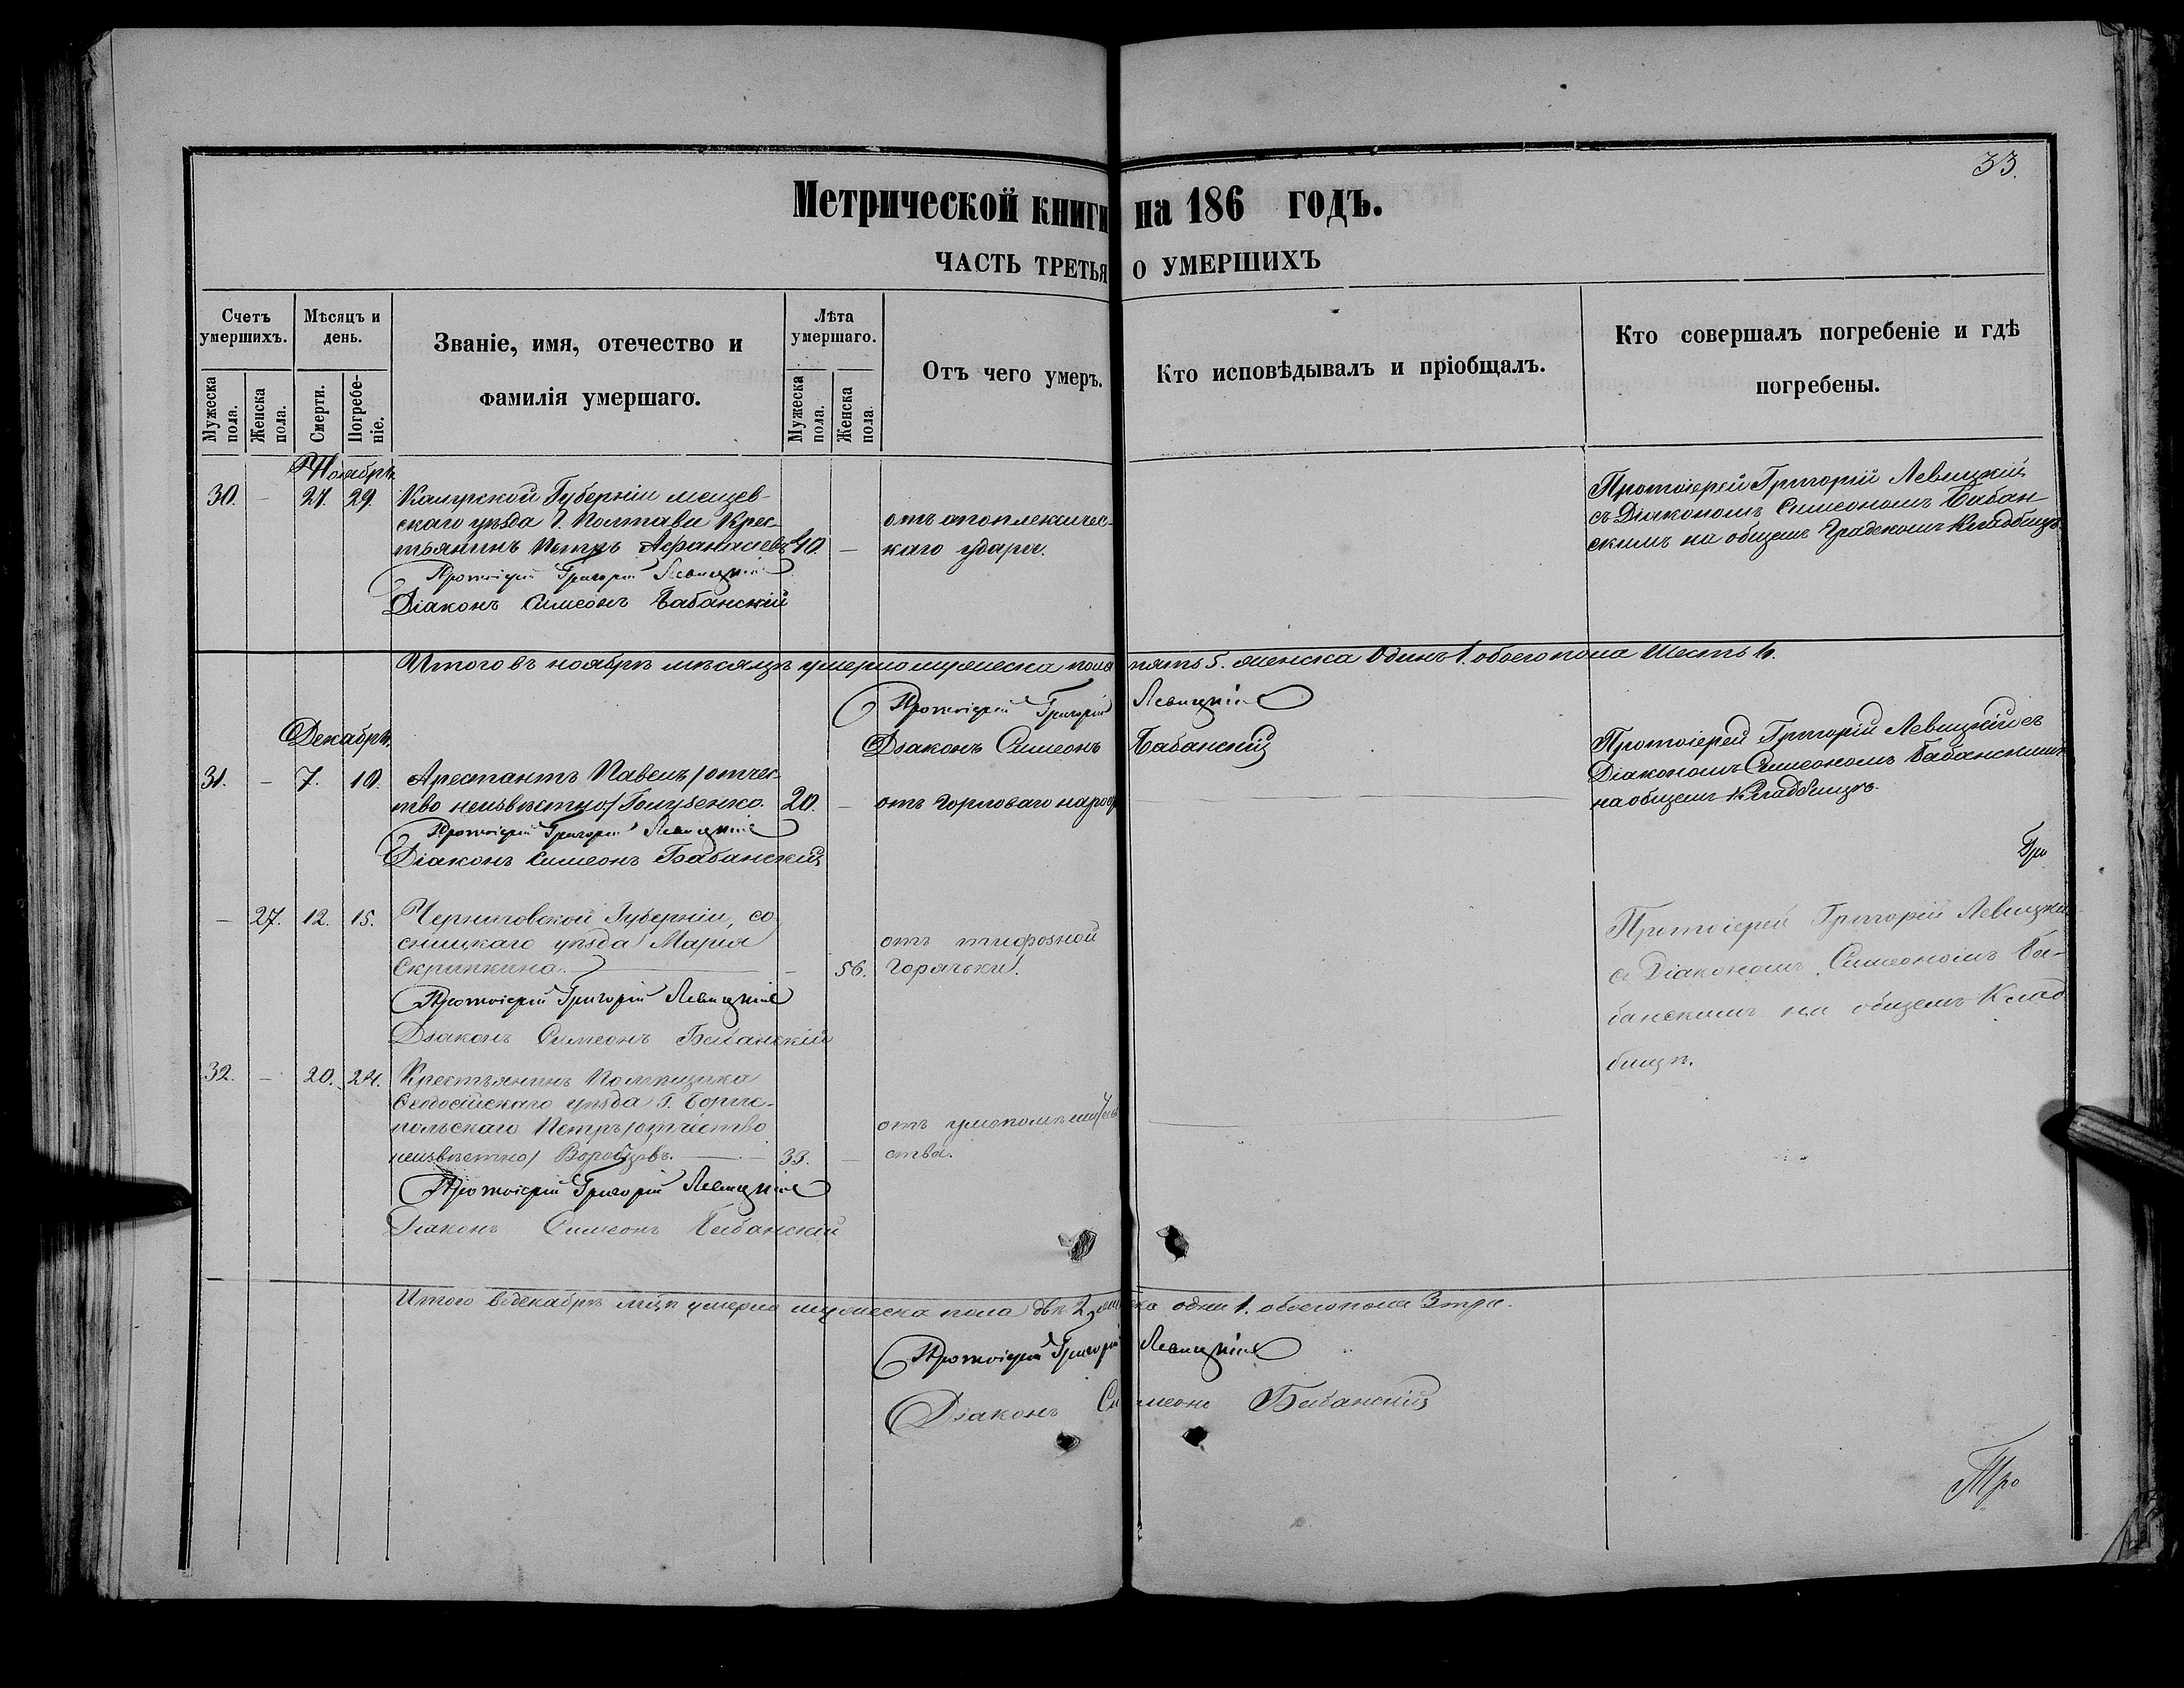 33.
Метрической книги на 186 годъ.
ЧАСТЬ ТРЕТЬЯ О УМЕРШИХЪ
Счетъ умершихъ.
Мѣсяцъ и день.
Званіе, имя, отечество и фамилія умершаго.
Лѣта умершаго.
Отъ чего умеръ.
Кто исповѣдывалъ и пріобщалъ.
Кто совершалъ погребеніе и гдѣ погребены.
Мужеска пола.
Женска пола.
Смерти.
Погребеніе.
Мужеска пола.
Женска пола
Ноябрь
30. - 27. 29. Калужской Губерніи мещев-
скаго уѣзда Крес-
тьянинъ Петръ Афанасьевъ 40. —
отъ апоплексичес-
каго удара.
Протоіерей Григорій Левицкій
съ Діакономъ Симеономъ Бабан
скимъ на общемъ Градскомъ Кладбищѣ
Протоіерей Григорій Левицкій
Діаконъ Симеонъ Бабанскій
Итого въ ноябрѣ мѣсяцѣ умерло мужеска пола пять 5. женска Одинъ 1. обоего пола Шесть 6.
Протоіерей Григорій Левицкій
Діаконъ Симеонъ Бабанскій
Декабрь
31. - 7. 10. Арестантъ Павелъ /отчес-
тво неизвѣстно/ Голубенко. 20. —
отъ горловаго
Протоіерей Григорій Левицкій съ
Діакономъ Симеономъ Бабанскимъ
на общемъ Кладбищѣ.
Протоіерей Григорій Левицкій
Діаконъ Симеонъ Бабанскій
- 27. 12. 15. Черниговской Губерніи, со
сницкаго уѣзда Марія
Скрипкина. — - 56.
отъ тифозной
горячки.
Протоіерей Григорій Левицкій
съ Діакономъ Симеономъ Ба-
банскимъ на общемъ Клад
бищѣ.
Протоіерей Григорій Левицкій
Діаконъ Симеонъ Бабанскій
32. - 20. 24. Крестьянинъ
Феодосійскаго уѣзда
Петръ /отчество
неизвѣстно/ 33. —
отъ
ства.
Протоіерей Григорій Левицкій
Діаконъ Симеонъ Бабанскій
Итого въ декабрѣ мцѣ умерло мужеска пола два 2, женска одна 1. обоего пола 3 три.
Протоіерей Григорій Левицкій
Діаконъ Симеонъ Бабанскій